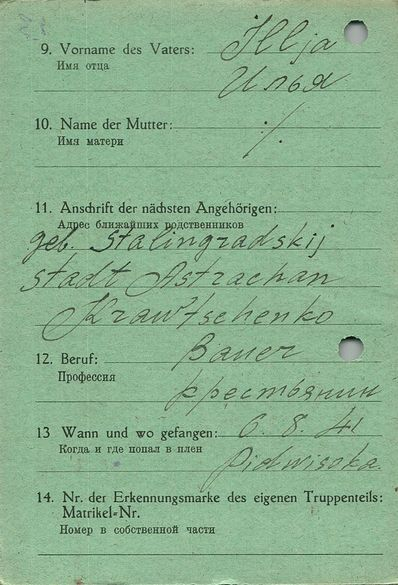 9. Vorname des Vaters: Illja
Имя отца
Илья
10. Name der Mutter: ·/.
Имя матери
11. Anschrift der nächsten Angehörigen:
Адрес ближайших родственников
geb. Stalingradskij
stadt Astrachan
Krawtschenko
12. Beruf: Bauer
Профессия
крестьянин
13 Wann und wo gefangen: 6. 8. 41
Когда и где попал в плен
Pidwisoka.
14. Nr. der Erkennungsmarke des eigenen Truppenteils:
Matrikel-Nr.
Номер в собственной части